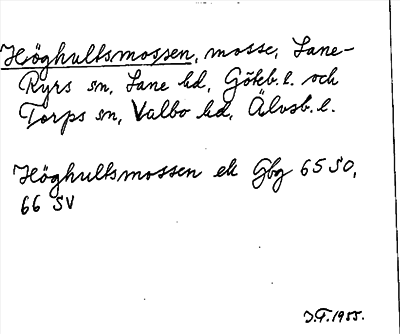 Höghultsmossen, mosse, Lane-
Ryrs sn, Lane hd, Göteb. l. och
Torps sn, Valbo hd, Älvsb. l.
Höghultsmossen ek Gbg 65 SO,
66 SV
J.F. 1955.